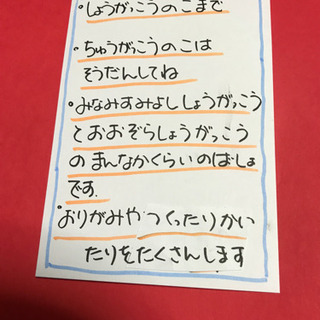 ・しょうがっこうのこまで
・ちゅうがっこうのこは
そうだんしてね
・みなみすみよししょうがっこう
とおおぞらしょうがっこう
のまんなかくらいのばしょ
です.
・おりがみやつくったりかい
たりをたくさんします